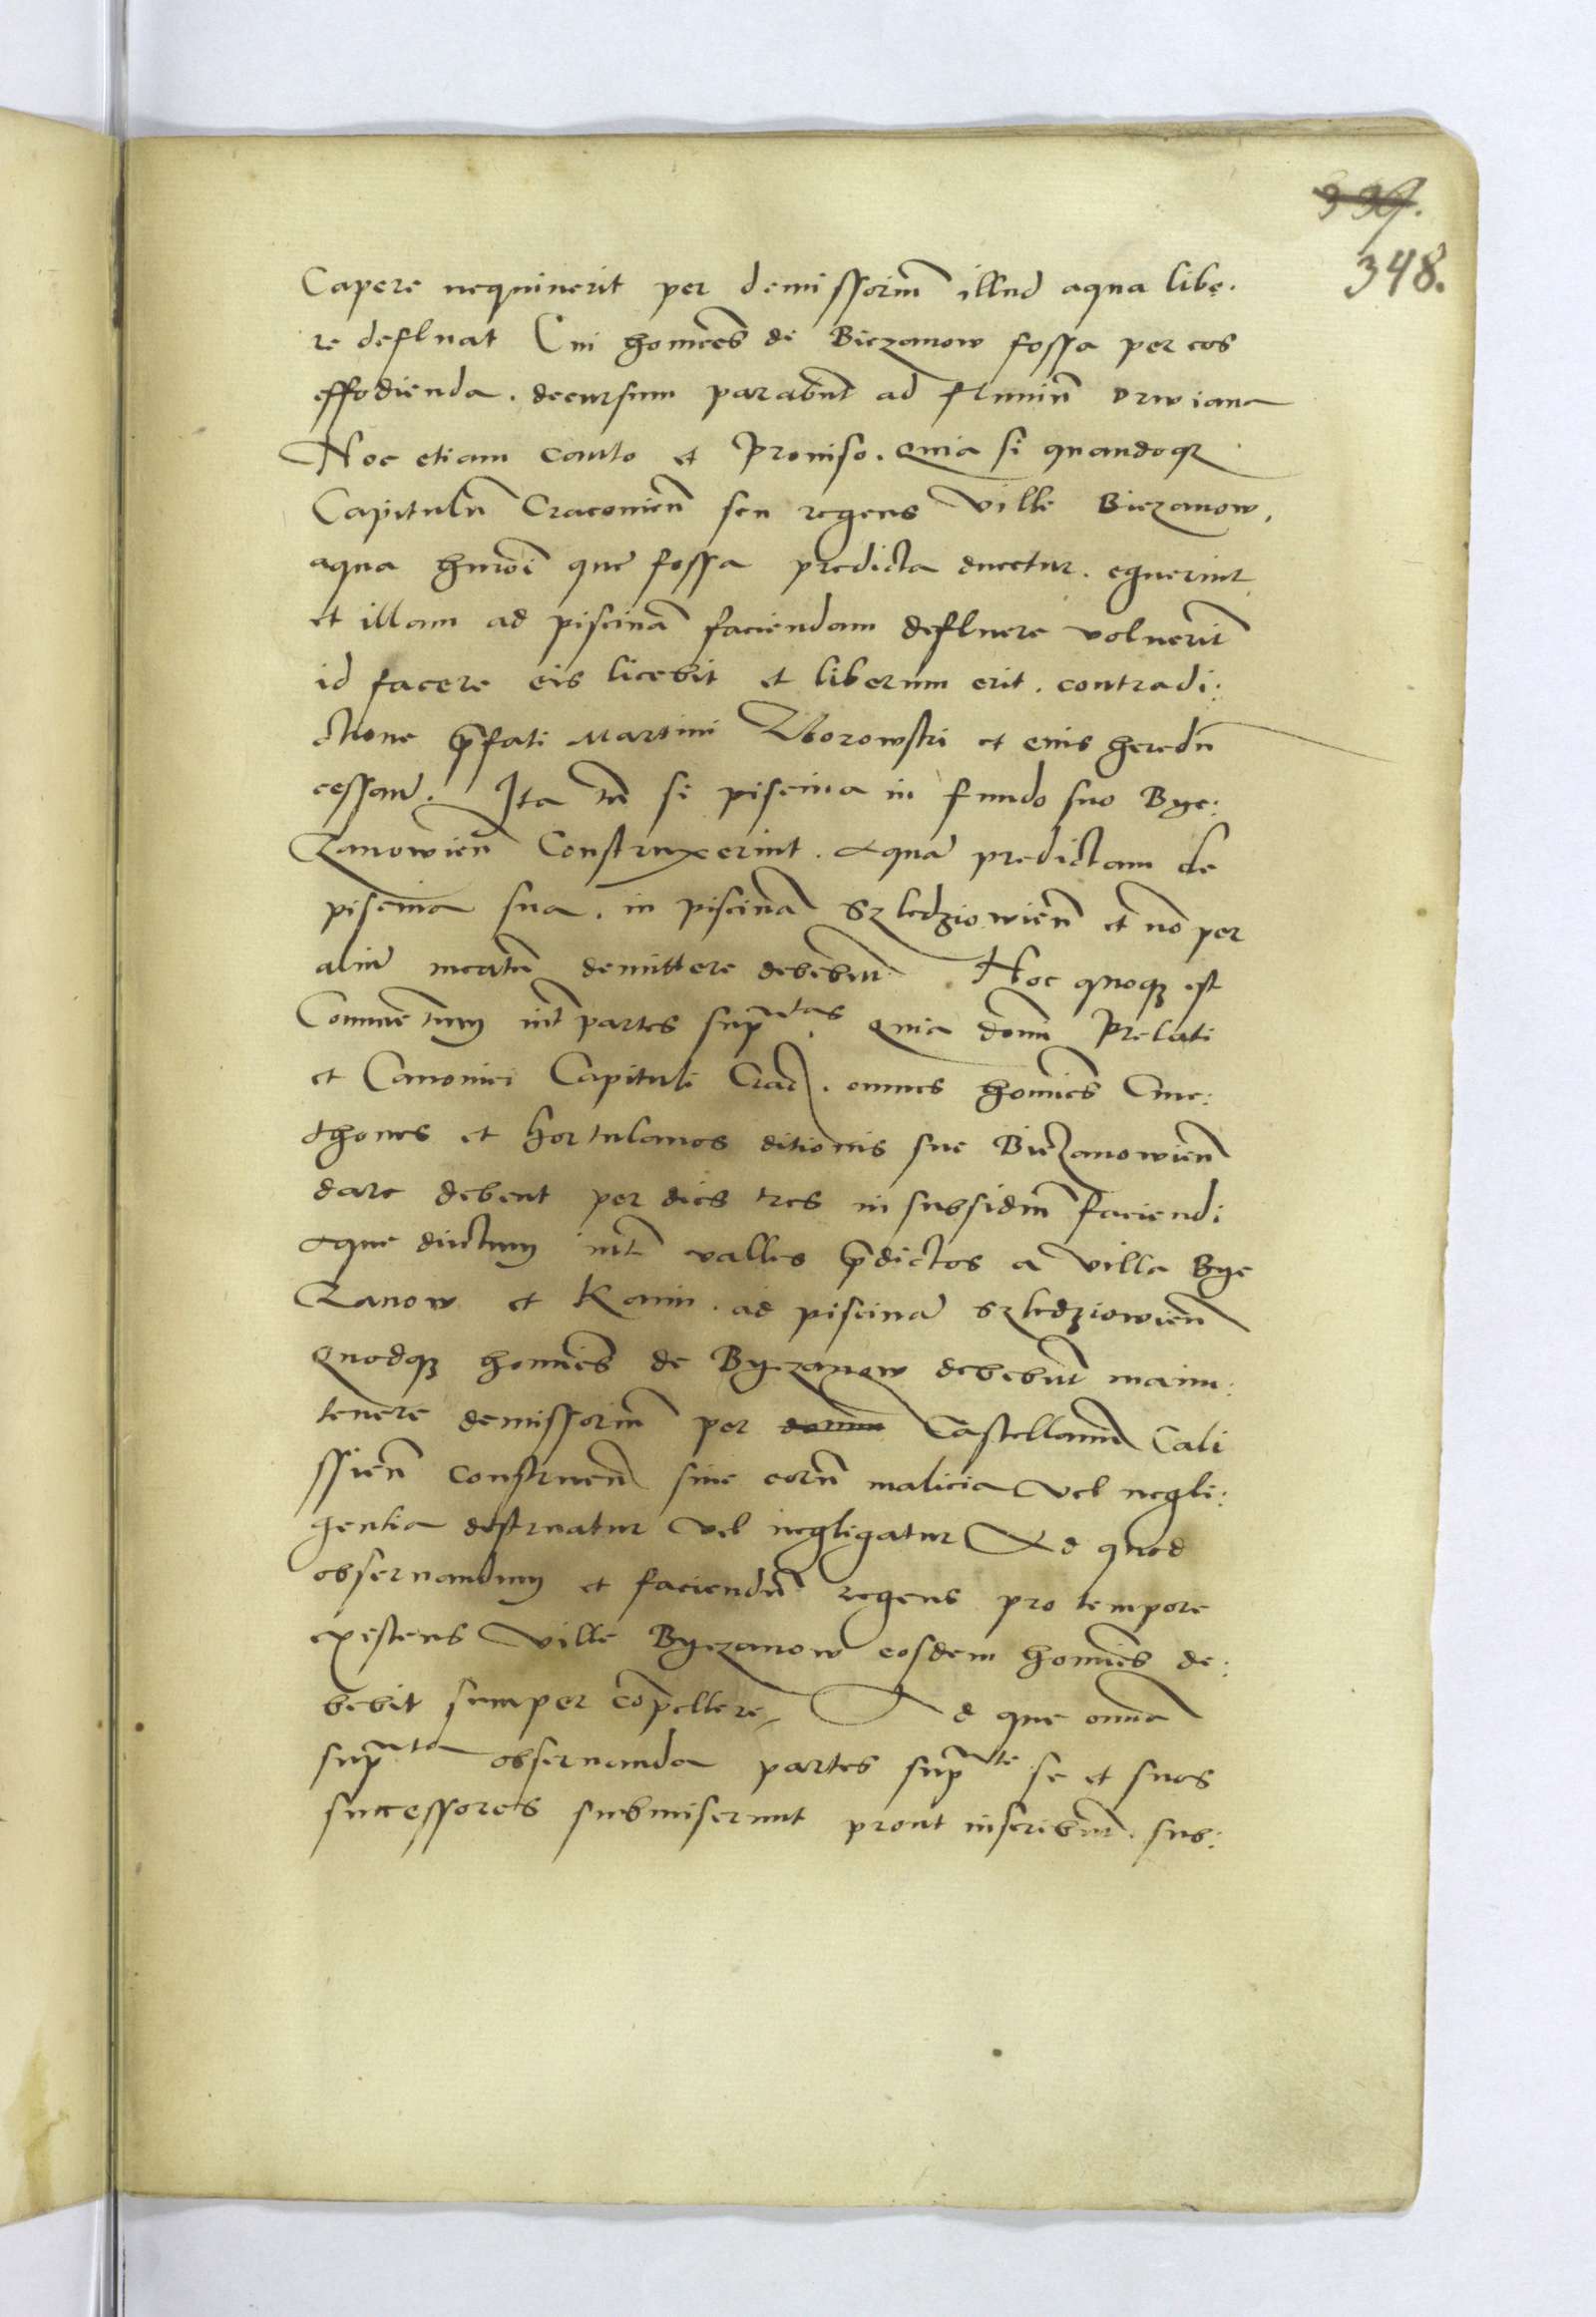 348.
Capere nequiuerit per demissoriũ illud aqua libe.
re defluat Cui homiẽs de Biezanow fossa per eos
effodienda. decursum parabũt ad fluuiũ Drwiana
Hoc etiam cauto et Prouiso. quia si quandoqȝ
Capitulũ Cracouieñ seu regens Ville Biezanow,
aqua hmõi que fossa predicta ducetur. eguerint
et illam ad piscinã faciendam defluere voluerĩt
id facere eis licebit et liberum erit. contradi:
ctione p̃fati Martini Zborowski et eius heredũ
cessañ. Ita tñ si piscina in fundo suo Bye:
Zanowieñ Construxerint. Aquã predictam de
piscina sua. in piscinã Szledziowieñ et nõ per
aliũ meatũ demittere debebũt. Hoc quoqȝ est
Conuẽtum int̃ partes sup̃tas. quia domĩ Prelati
et Canonici Capituli Crac. omnes homiẽs Cme:
thones et hortulanos ditionis sue Biezanowieñ
dare debent per dies tres in subsidiũ faciendi
Aque ductum int̃ valles p̃dictos a villa Bye
Zanow et Kaim. ad piscinã Szledziowieñ
Quodqȝ homiẽs de Byezanow debebũt manu:
tenere demissoriũ per domĩu Castellanũ Cali
ssieñ construeñ siue eorũ malicia vel negli:
gentia destruatur vel negligatur Ad quod
obseruandum et faciendũ regens pro tempore
existens Ville Byezanow eosdem homiẽs de:
bebit semper cõpellere, Ad que omnia
sup̃ta obseruanda partes sup̃te se et suos
successores submiserunt prout inscribũt. sub: